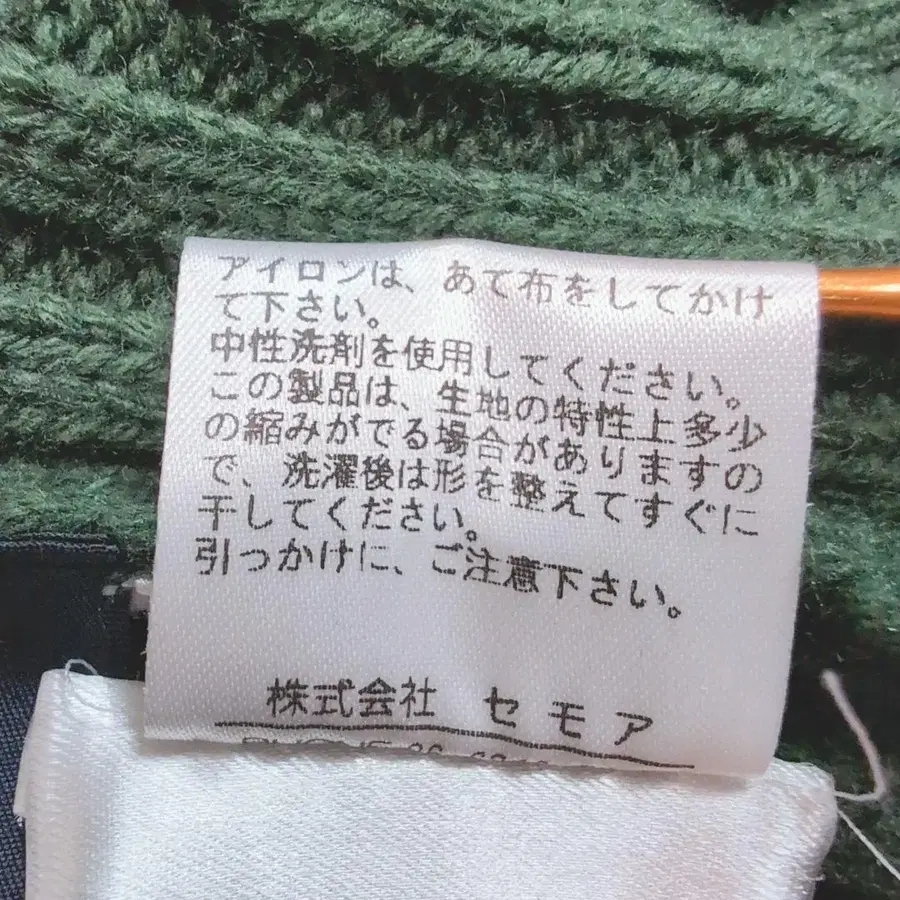 アイロンは、あて布をしてかけ
て下さい。
中性洗剤を使用してください。
この製品は、生地の特性上多少
の縮みがでる場合がありますの
で、洗濯後は形を整えてすぐに
干してください。
引っかけに、ご注意下さい。
株式会社 セモア